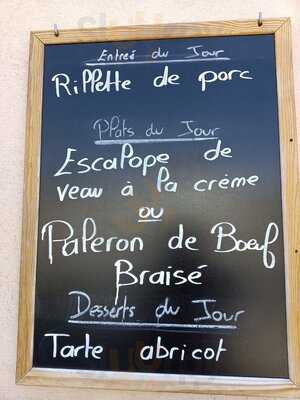 Entreé du Jour
Rillette de porc
Plats du Jour
Escalope de
veau à la crème
ou
Paleron de Boeuf
Braisé
Desserts du Jour
Tarte abricot